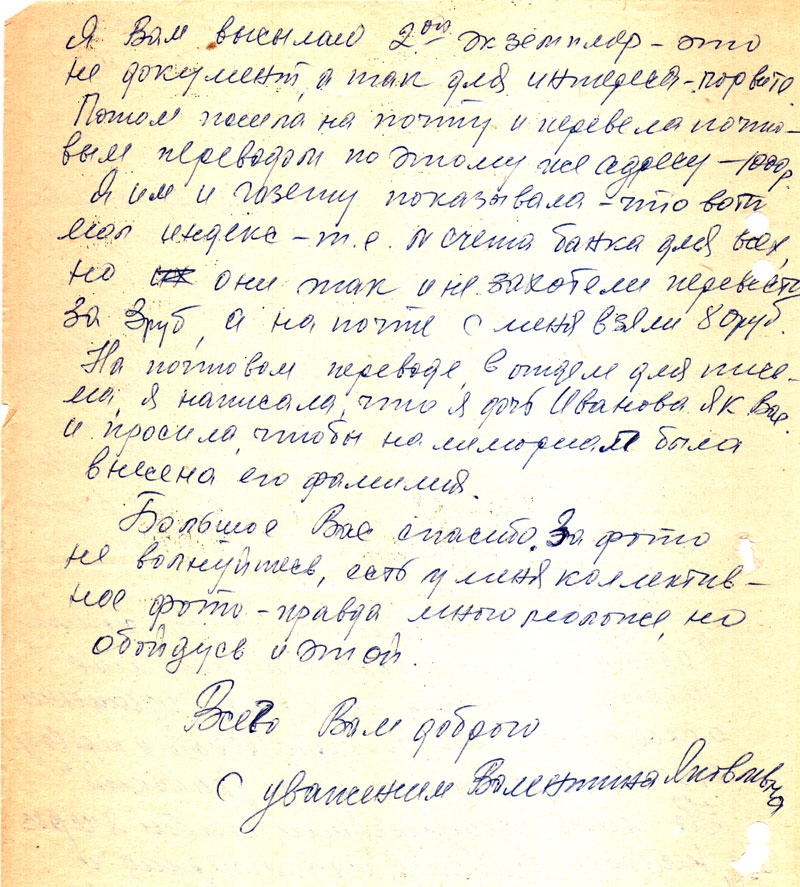 Я Вам высылаю 2ой экземпляр – это
не документ, а так для интереса – порвите.
Потом пошла на почту и перевела почто-
вым переводом по этому же адресу –
Я им и газету показывала – что вот
мол индекс – т.е. № счета банка для всех,
но они так и не захотели перевести
за 3руб, а на почте с меня взяли 80руб.
На почтовом переводе, в отделе для пись-
ма, я написала, что я дочь Иванова Як Вас.
и просила, чтобы на мемориал была
внесена его фамилия.
Большое Вас спасибо. За фото
не волнуйтесь, есть у меня коллектив-
ное фото – правда много моложе, но
обойдусь и этой.
Всего Вам доброго
С уважением Валентина Яковлевна